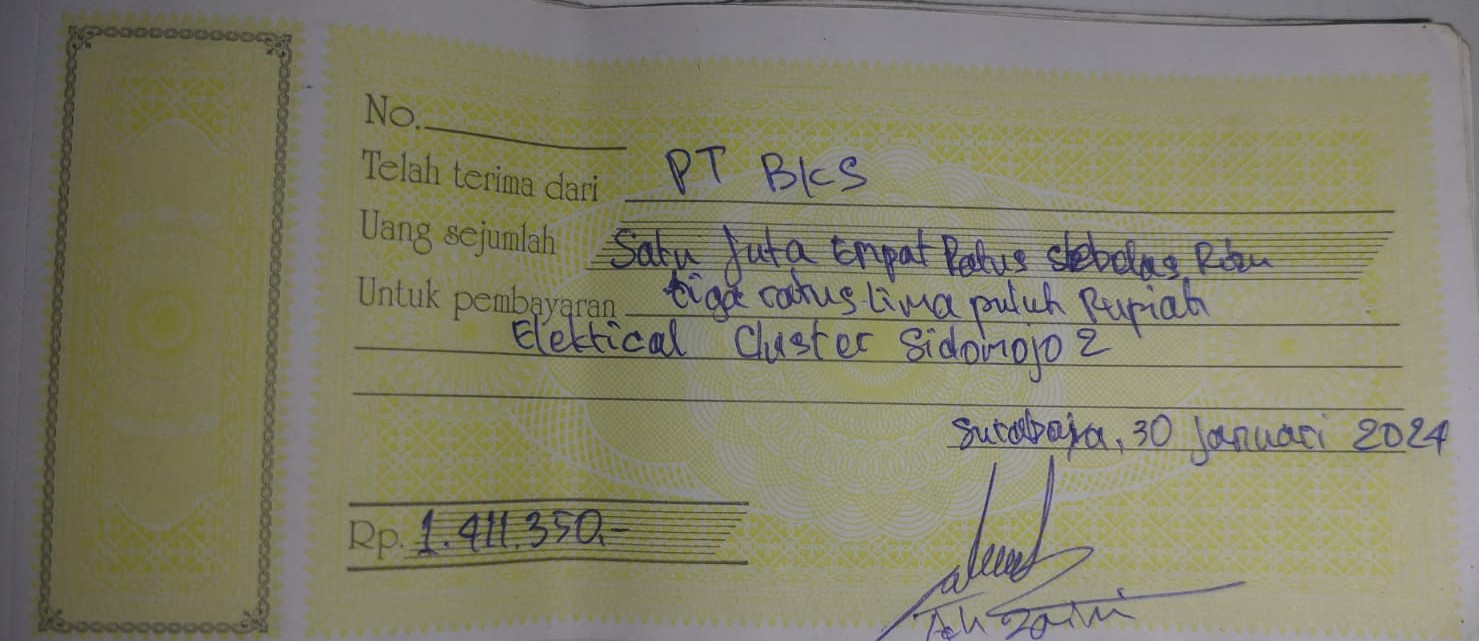 No.
Telah terima dari PT BKS
Uang sejumlah Satu Juta Empat Ratus Sebelas Ribu
Untuk pembayaran tiga ratus Lima puluh Rupiah
Elektical Cluster Sidomojo 2
Surabaya, 30 Januari 2024
Rp. 1.411.350,-
Zaini